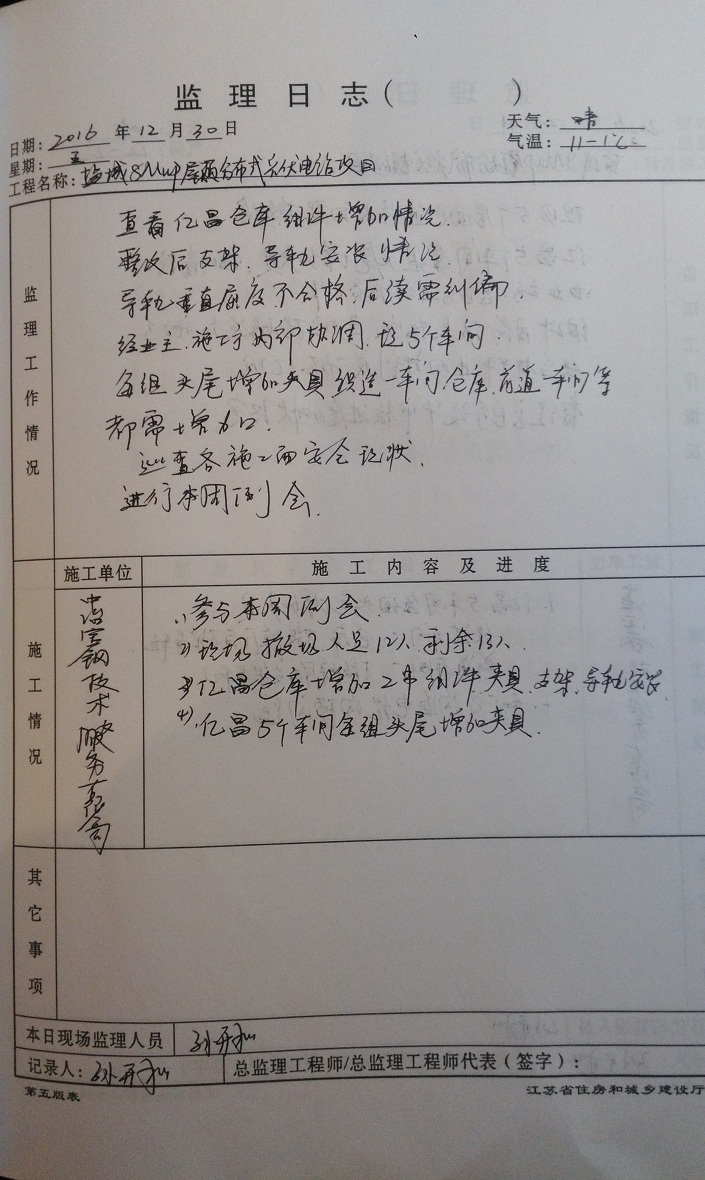 监理日志( )
日期: 2016 年 12 月 30 日
天气: 晴
星期: 五
气温: 11-1℃
工程名称: 盐城8MWP屋顶分布式光伏电站项目
监理工作情况
查看亿昌仓库组件增加情况.
整改后支架、导轨安装情况
导轨垂直度不合格,后续需纠偏.
经业主、施工方内部协调,
5个车间.
每组头尾增加夹具
一车间仓库、
一车间等
都需增加.
巡查各施工面安全现状.
进行本周例会.
施工单位
施工内容及进度
施工情况
技术服务有限公司
1、参与本周例会.
2) 现场撤场人员12人,剩余13人.
3) 亿昌仓库增加工作组件夹具、支架、导轨安装.
4)、亿昌5个车间每组头尾增加夹具.
其它事项
本日现场监理人员
记录人:
总监理工程师/总监理工程师代表(签字):
第五版表
江苏省住房和城乡建设厅